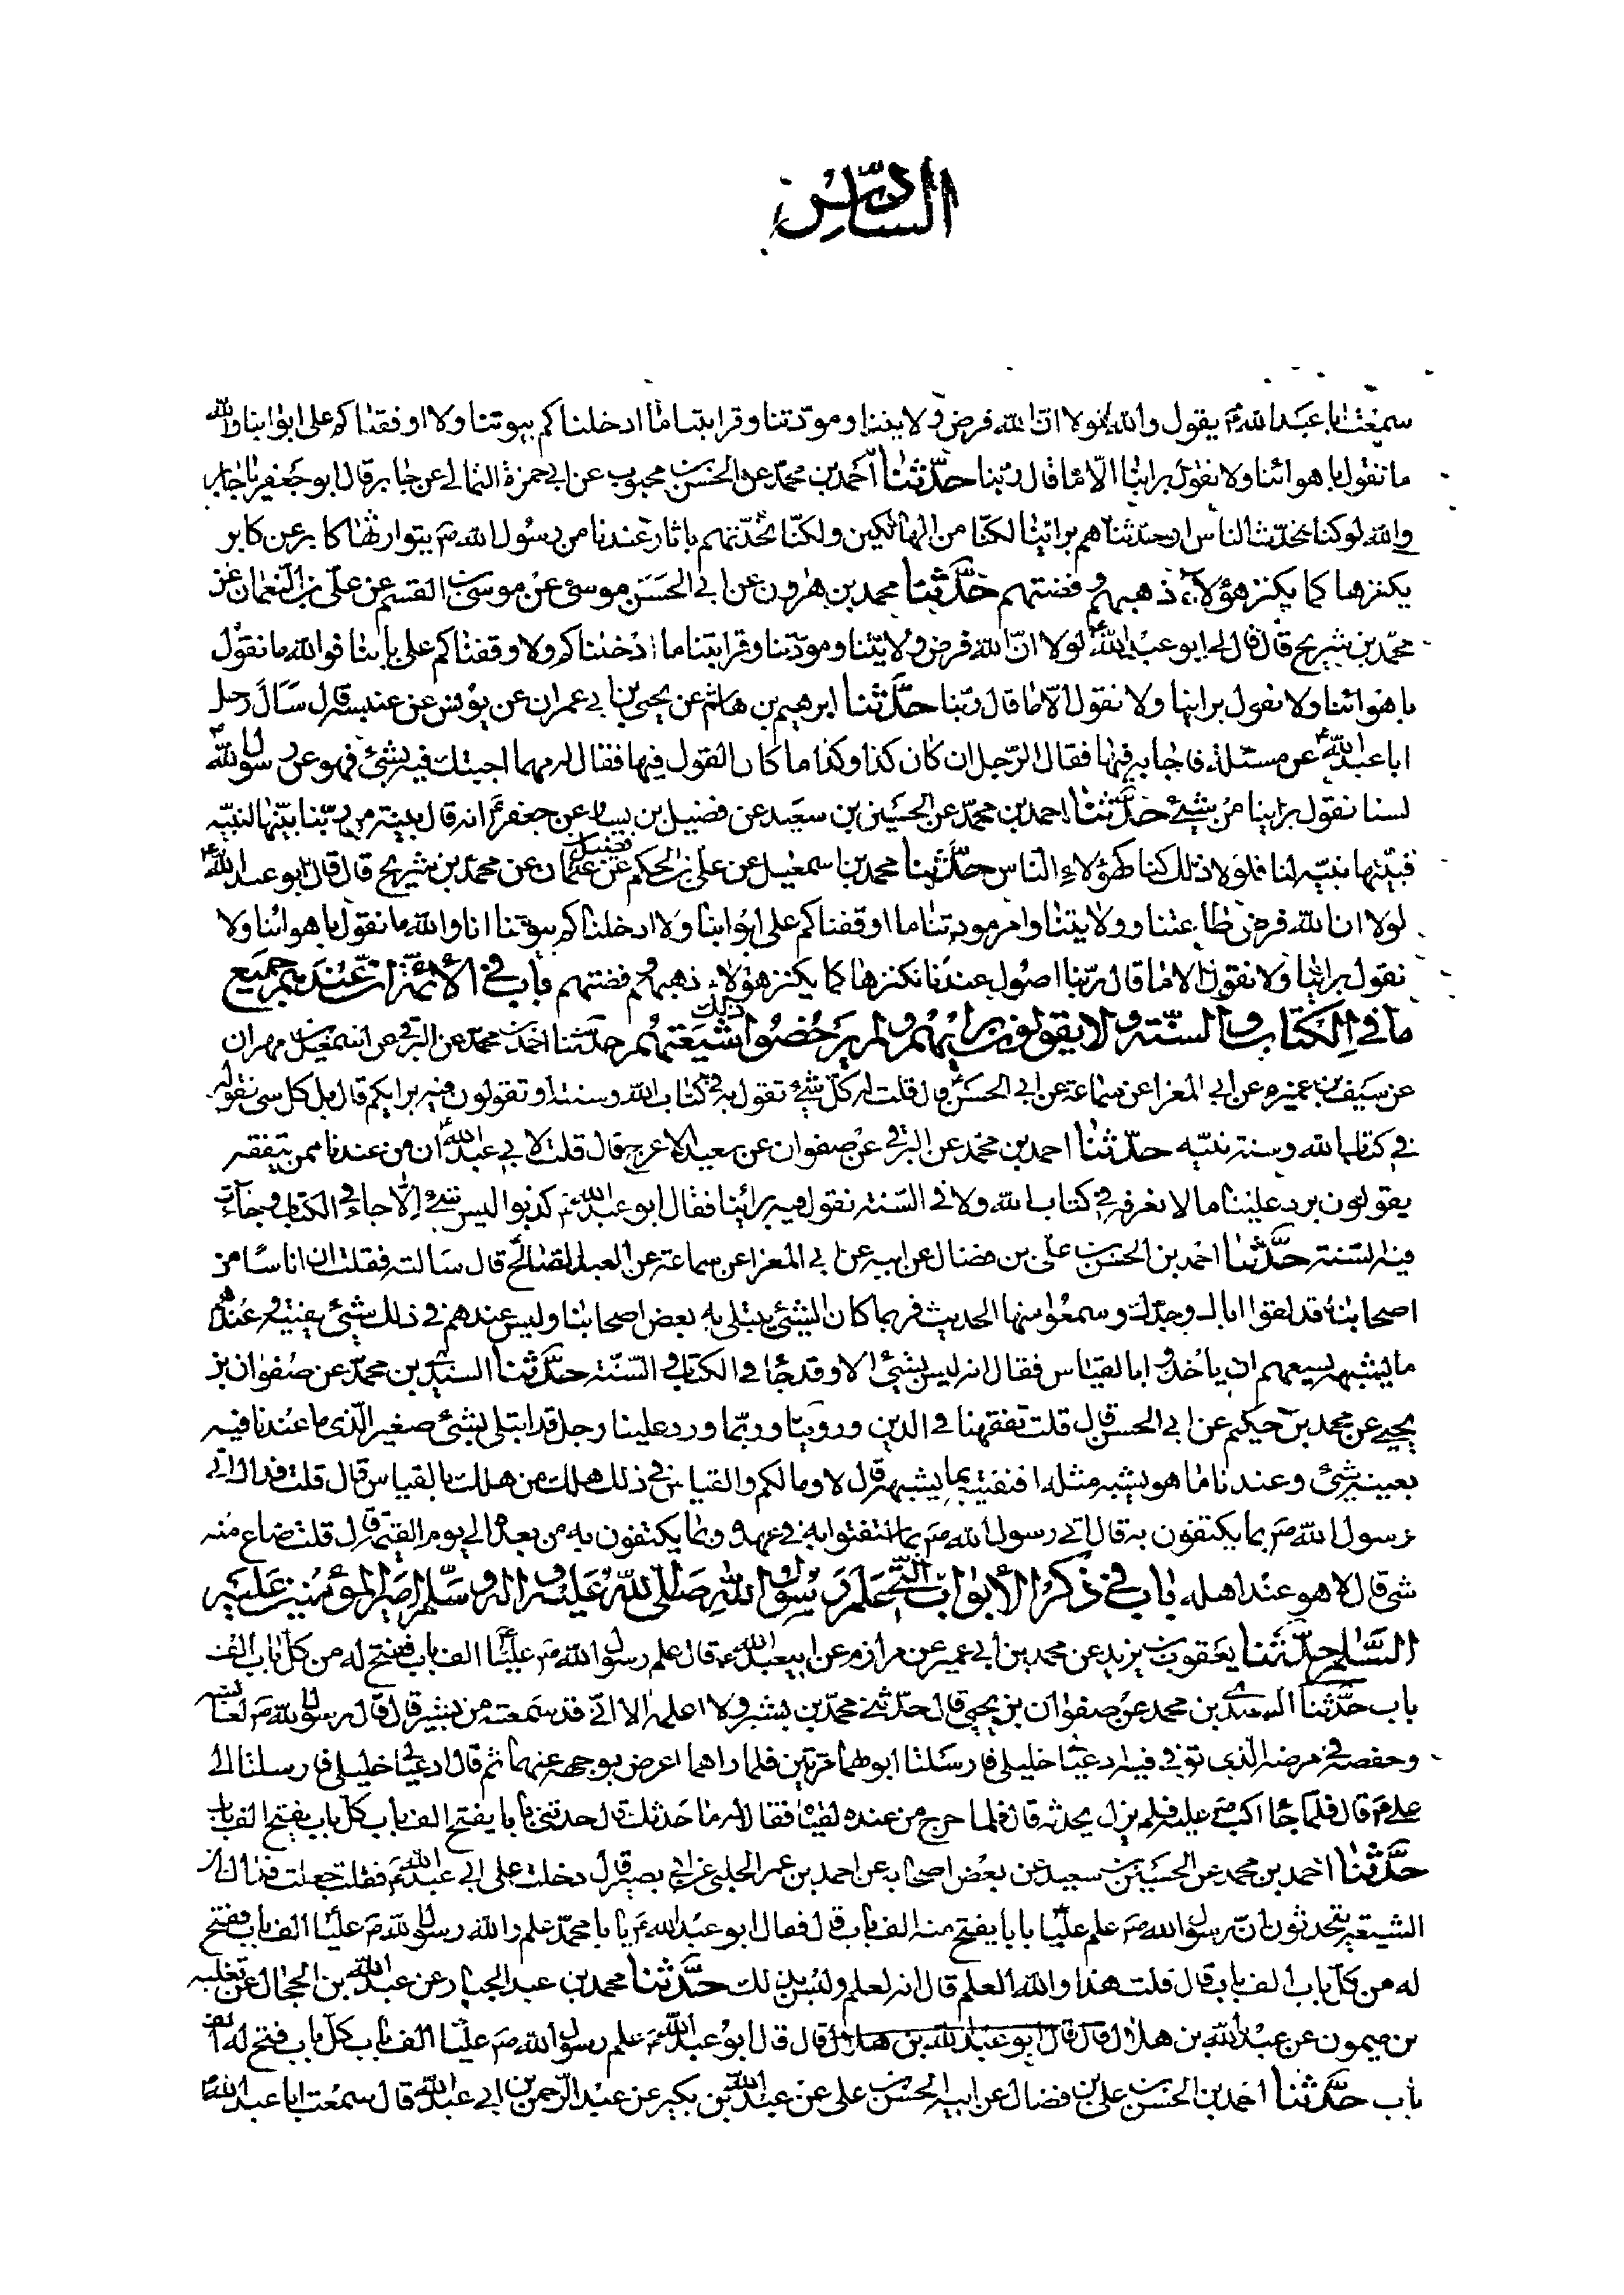 السادس
سمعت ابا عبد الله ع يقول والله لولا ان الله فرض ولايتنا ومودتنا وقرابتنا ما ادخلناكم بيوتنا ولا اوقفناكم على ابوابنا والله
ما نقول باهوائنا ولا نقول براينا الا ما قال ربنا حدثنا احمد بن محمد عن الحسن بن محبوب عن ابي حمزة الثمالي عن جابر قال ابو جعفر يا جابر
والله لو كنا نحدث الناس او حدثناهم براينا لكنا من الهالكين ولكنا نحدثهم باثار عندنا من رسول الله ص يتوارثها كابر عن كابر
يكنزها كما يكنز هؤلاء ذهبهم وفضتهم حدثنا محمد بن هرون عن ابي الحسن موسى عن موسى بن القسم عن علي بن النعمان عن
محمد بن شريح قال قال لي ابو عبد الله ع لولا ان الله فرض ولايتنا ومودتنا وقرابتنا ما ادخلناكم ولا وقفناكم على بابنا فوالله ما نقول
باهوائنا ولا نقول براينا ولا نقول الا ما قال ربنا حدثنا ابرهيم بن هاشم عن يحيى بن ابي عمران عن يونس عن عنبسة قال سال رجل
ابا عبد الله ع عن مسئلة فاجابه فيها فقال الرجل ان كان كذا وكذا ما كان القول فيها فقال له مهما اجبتك فيه بشئ فهو عن رسول الله
لسنا نقول براينا من شئ حدثنا احمد بن محمد عن الحسين بن سعيد عن فضيل بن يسار عن جعفر ع انه قال بينة من ربنا بينها لنبيه
فبينها نبيه لنا فلولا ذلك كنا كهؤلاء الناس حدثنا محمد بن اسمعيل عن علي بن الحكم عن فضيل عثمان عن محمد بن شريح قال قال ابو عبد الله ع
لولا ان الله فرض طاعتنا وولايتنا وامر مودتنا ما اوقفناكم على ابوابنا ولا ادخلناكم بيوتنا انا والله ما نقول باهوائنا ولا
نقول براينا ولا نقول الا ما قال ربنا اصول عندنا نكنزها كما يكنز هؤلاء ذهبهم وفضتهم باب في الائمة ان عندهم جميع
ما في الكتاب والسنة ولا يقولون برايهم ولم يرخصوا ذلك شيعتهم حدثنا احمد بن محمد عن البرقي عن اسمعيل بن مهران
عن سيف بن عميرة عن ابي المغرا عن سماعة عن ابي الحسن ع قال قلت له كل شئ تقول به في كتاب الله وسنته او تقولون فيه برايكم قال بل كل شئ نقوله
في كتاب الله وسنة نبيه حدثنا احمد بن محمد عن البرقي عن صفوان عن سعيد الاعرج قال قلت لابي عبد الله ع ان من عندنا ممن يتفقه
يقولون يرد علينا ما لا نعرفه في كتاب الله ولا في السنة نقول فيه براينا فقال ابو عبد الله ع كذبوا ليس شئ الا جاء في الكتاب وجاءت
فيه السنة حدثنا احمد بن الحسن بن علي بن فضال عن ابيه عن ابي المغرا عن سماعة عن العبد الصالح قال سالته فقلت ان اناسا من
اصحابنا قد لقوا اباك وجدك وسمعوا منهما الحديث فربما كان الشئ يبتلى به بعض اصحابنا وليس عندهم في ذلك شئ يفتيه وعندهم
ما يشبهه يسعهم ان ياخذوا بالقياس فقال انه ليس بشئ الا وقد جاء في الكتاب والسنة حدثنا السندي بن محمد عن صفوان بن
يحيى عن محمد بن حكيم عن ابي الحسن قال قلت تفقهنا في الدين وروينا وربما ورد علينا رجل قد ابتلى بشئ صغير الذي ما عندنا فيه
بعينه شئ وعندنا ما هو يشبه مثله افنفتيه بما يشبهه قال لا وما لكم والقياس في ذلك هلك من هلك بالقياس قال قلت فداك اتى
رسول الله ص بما يكتفون به قال اتى رسول الله ص بما اكتفوا به في عهده وبما يكتفون به من بعده الى يوم القيمة قال قلت ضاع منه
شئ قال لا هو عند اهله باب في ذكر الابواب التي علم رسول الله صلى الله عليه واله وسلم امير المؤمنين عليه
السلام حدثنا يعقوب بن يزيد عن محمد بن ابي عمير عن مرازم عن ابي عبد الله ع قال علم رسول الله ص عليا الف باب فيفتح له من كل باب الف
باب حدثنا السندي بن محمد عن صفوان بن يحيى قال حدثني محمد بن بشير ولا اعلمه الا اني قد سمعته من بشير قال قال رسول الله ص لعايشة
وحفصة في مرضه الذي توفي فيه ادعيا خليلي فارسلنا ابوطما مرتين فلما راهما اعرض بوجهه عنهما ثم قال ادعيا لي خليلي فارسلنا الى
علي ع قال فلما جاء اكب عليه فلم يزل يحدثه قال فلما خرج من عنده لقياه فقالا له ما حدثك قال حدثني بابا يفتح الف باب كل باب يفتح الف باب
حدثنا احمد بن محمد عن الحسين بن سعيد عن بعض اصحابه عن احمد بن عمر الحلبي عن ابي بصير قال دخلت على ابي عبد الله ع فقلت جعلت فداك ان
الشيعة يتحدثون ان رسول الله ص علم عليا بابا يفتح منه الف باب قال فقال ابو عبد الله ع يا با محمد علم والله رسول الله ص عليا الف باب يفتح
له من كل باب الف باب قال قلت هذا والله العلم قال انه لعلم وليس بذلك حدثنا محمد بن عبد الجبار عن عبد الله بن الحجال عن ثعلبة
بن ميمون عن عبد الله بن هلال قال قال ابو عبد الله بن هلال قال قال ابو عبد الله ع علم رسول الله ص عليا الف باب كل باب فتح له الف
باب حدثنا احمد بن الحسن بن علي بن فضال عن ابيه الحسن بن علي عن عبد الله بن بكير عن عبد الرحمن بن ابي عبد الله قال سمعت ابا عبد الله ع